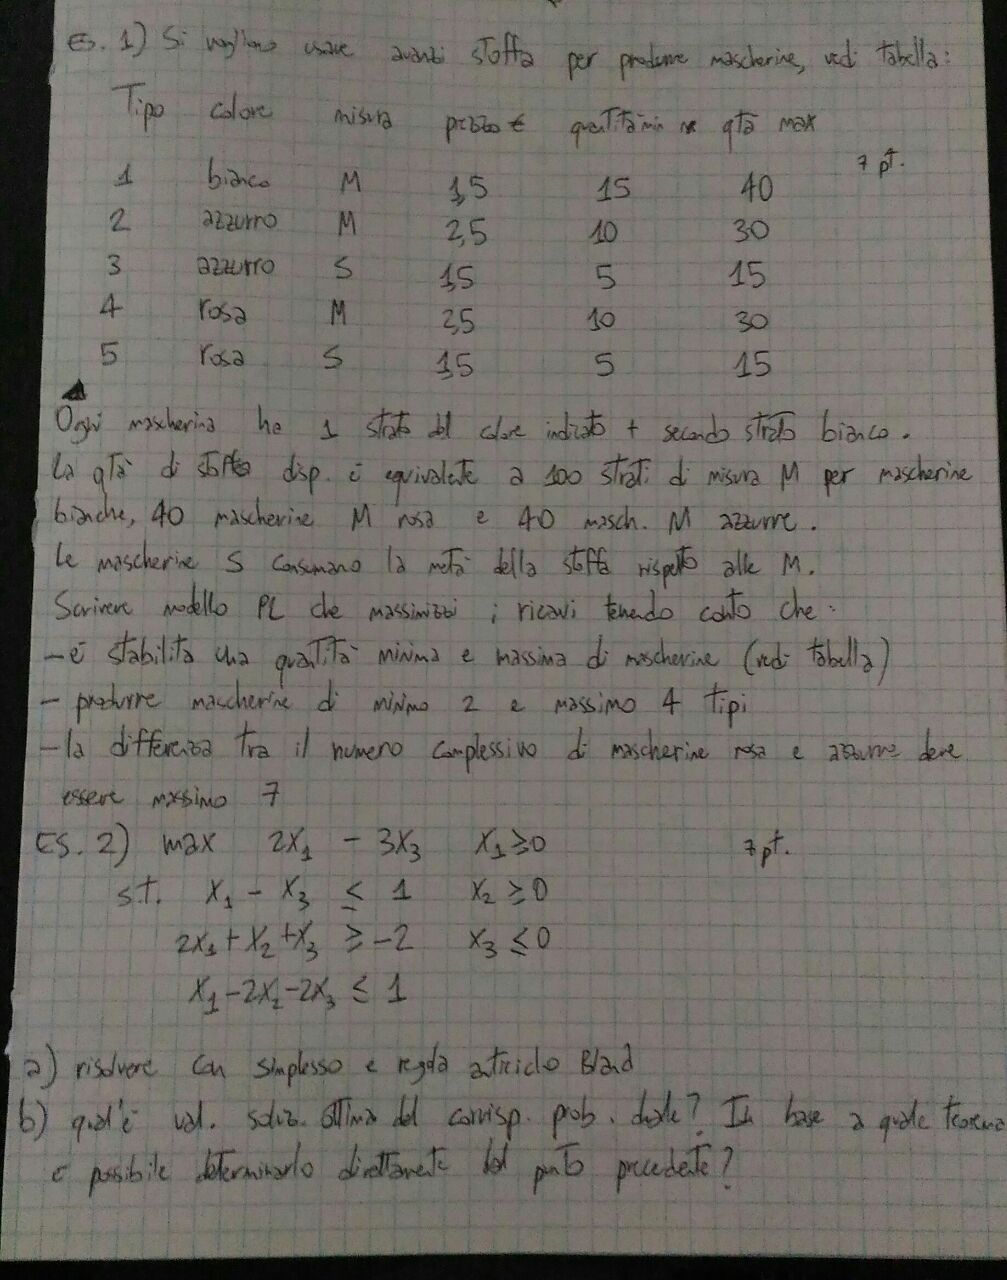 Es. 1) Si vogliono usare avanzi stoffa per produrre mascherine, vedi tabella:
Tipo colore misura prezzo € quantità min qtà max
7 pt.
1 bianco M 1,5 15 40
2 azzurro M 2,5 10 30
3 azzurro S 1,5 5 15
4 rosa M 2,5 10 30
5 rosa S 1,5 5 15
Ogni mascherina ha 1 strato del colore indicato + secondo strato bianco.
La qtà di stoffa disp. è equivalente a 100 strati di misura M per mascherine
bianche, 40 mascherine M rosa e 40 masch. M azzurre.
Le mascherine S consumano la metà della stoffa rispetto alle M.
Scrivere modello PL che massimizzi i ricavi tenendo conto che:
- è stabilita una quantità minima e massima di mascherine (vedi tabella)
- produrre mascherine di minimo 2 e massimo 4 tipi
- la differenza tra il numero complessivo di mascherine rosa e azzurre deve
essere massimo 7
ES. 2) max 2x₁ - 3x₃ x₁ ≥ 0 7 pt.
s.t. x₁ - x₃ ≤ 1 x₂ ≥ 0
2x₁ + x₂ + x₃ ≥ -2 x₃ ≤ 0
x₁ - 2x₂ - 2x₃ ≤ 1
a) risolvere con simplesso e regola anticiclo Bland
b) qual'è val. soluz. ottima del corrisp. prob. duale? In base a quale teorema
è possibile determinarlo direttamente dal punto precedente?